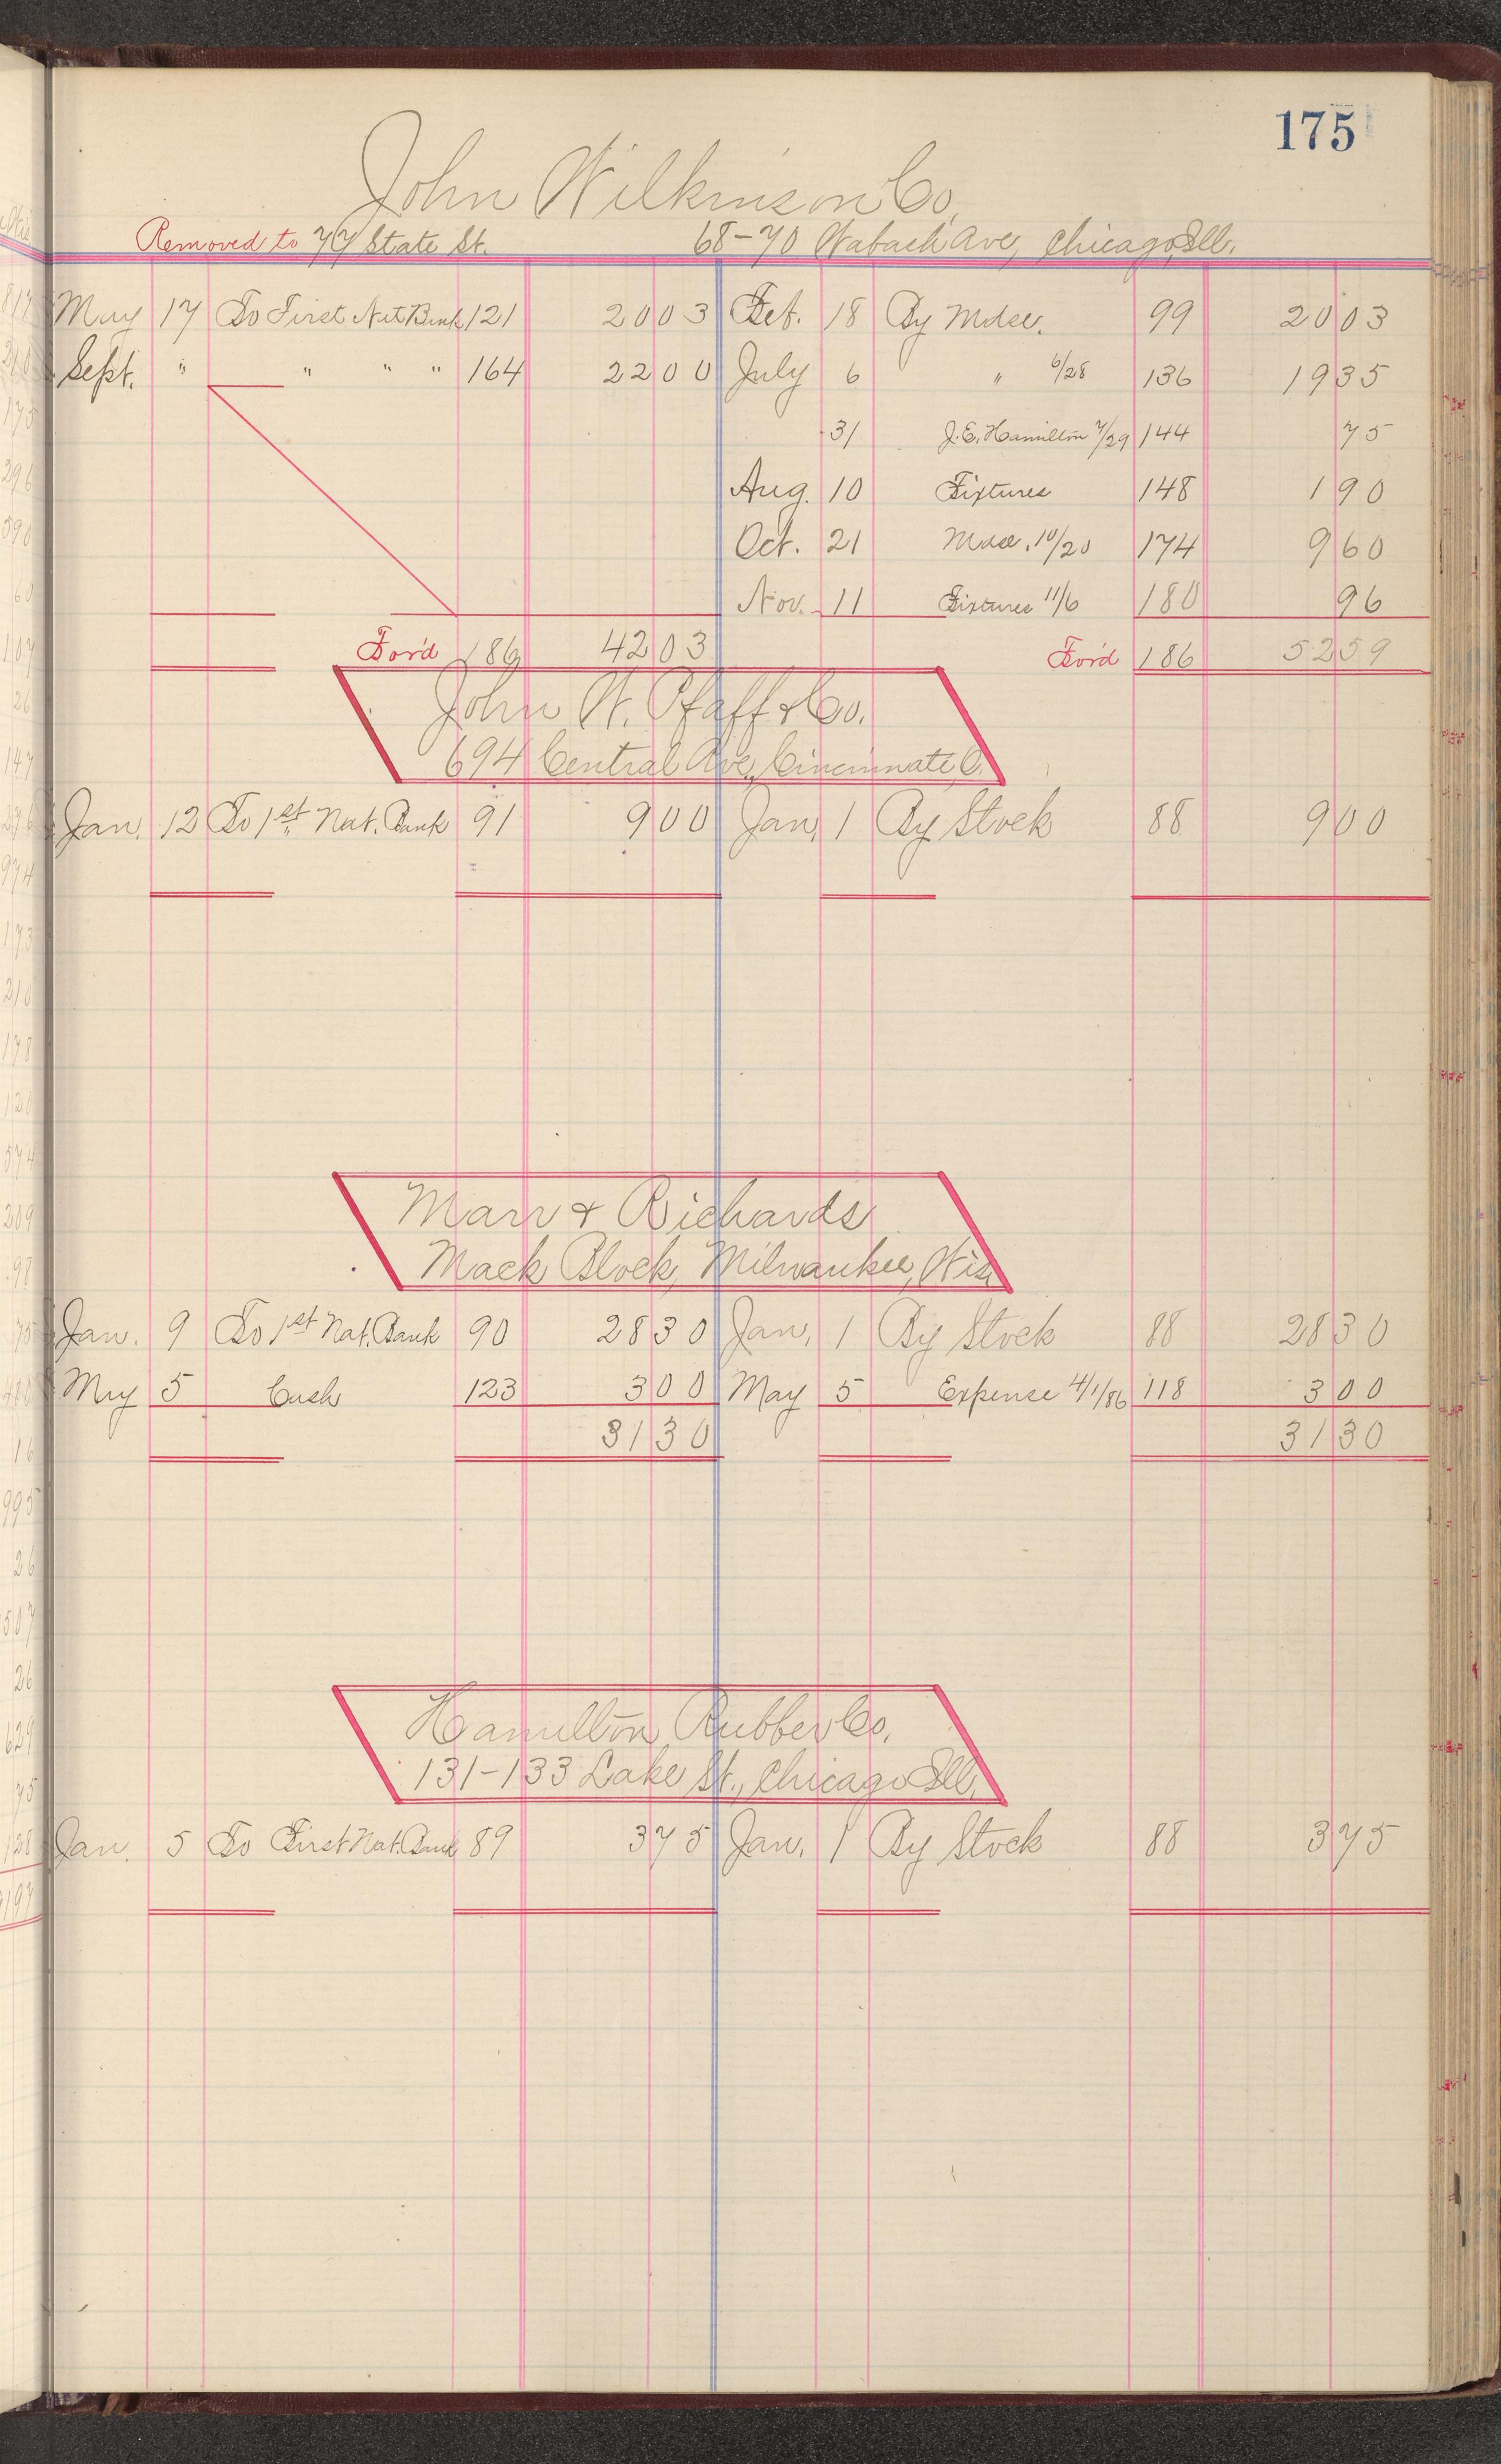 175
John Wilkinson Co.
Removed to 77 State St. 68-70 Wabash Ave, Chicago, Ill.
May 17 To First Nat Bank 121 2003 Feb. 18 By Mdse. 99 2003
Sept. " " " " 164 2200 July 6 " 6/28 136 1935
31 J.E. Hamilton 7/29 144 75
Aug. 10 Fixtures 148 190
Oct. 21 Mdse. 10/20 174 960
Nov. 11 Fixtures 11/6 180 96
For'd 186 4203 For'd 186 5259
John W. Pfaff & Co.
694 Central Ave., Cincinnati, O.
Jan. 12 To 1st Nat. Bank 91 900 Jan. 1 By Stock 88 900
Marr & Richards
Mack Block, Milwaukee, Wis.
Jan. 9 To 1st Nat. Bank 90 2830 Jan. 1 By Stock 88 2830
May 5 Cash 123 300 May 5 Expense 4/1/86 118 300
3130 3130
Hamilton Rubber Co.
131-133 Lake St., Chicago Ill.
Jan. 5 To First Nat. Bank 89 375 Jan. 1 By Stock 88 375